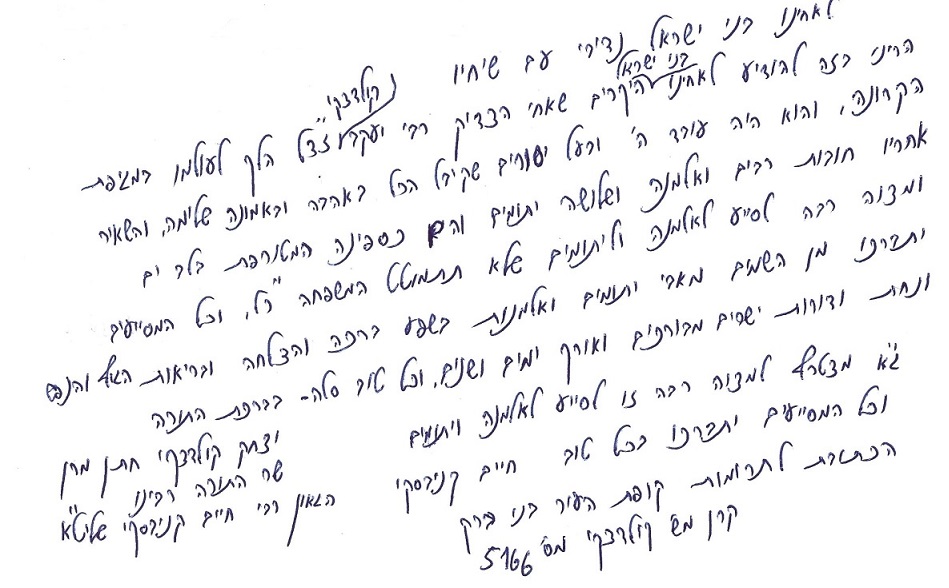 לאחינו בני ישראל נדיבי עם שיחיו
הריני בזה להודיע לאחינו בני ישראל היקרים שאחי הצדיק רבי יעקב קולדצקי זצ"ל הלך לעולמו במגיפת
הקרונה, והוא היה עובד ה' ובעל יסורים שקיבל הכל באהבה ובאמונה שלימה, והשאיר
אחריו חובות רבים ואלמנה ושלושה יתומים והם כספינה המטורפת בלב ים
ומצוה רבה לסייע לאלמנה וליתומים שלא תתמוטט המשפחה ח"ו, וכל המסייעים
יתברכו מן השמים מאבי יתומים ואלמנות בשפע ברכה והצלחה ובריאות הגוף והנפש
ונחת ודורות ישרים מבורכים ואורך ימים ושנים, וכל טוב סלה - בברכת התורה
יצחק קולדצקי חתן מרן
שר התורה רבינו
הגאון רבי חיים קניבסקי שליט"א
ג"א מצטרף למצוה רבה זו לסייע לאלמנה ויתומים
וכל המסייעים יתברכו בכל טוב חיים קניבסקי
הכתובת לתרומות קופת העיר בני ברק
קרן מש' קולדצקי מס' 5166